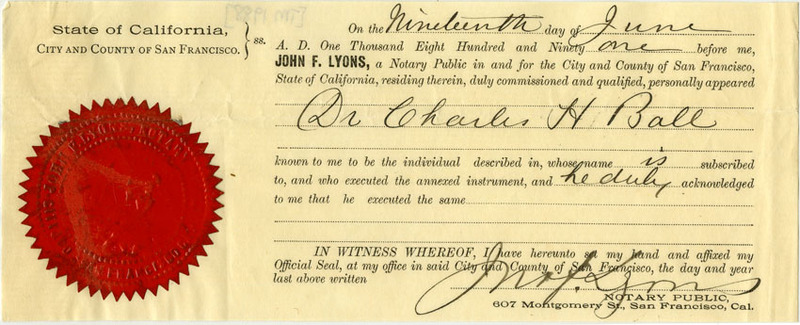 State of California,
CITY AND COUNTY OF SAN FRANCISCO. } ss.
On the Nineteenth day of June
A. D. One Thousand Eight Hundred and Ninety one before me,
JOHN F. LYONS, a Notary Public in and for the City and County of San Francisco,
State of California, residing therein, duly commissioned and qualified, personally appeared
Dr Charles H Ball
known to me to be the individual described in, whose name is subscribed
to, and who executed the annexed instrument, and he duly acknowledged
to me that he executed the same
IN WITNESS WHEREOF, I have hereunto set my hand and affixed my
Official Seal, at my office in said City and County of San Francisco, the day and year
last above written
Jno. F. Lyons
NOTARY PUBLIC,
607 Montgomery St., San Francisco, Cal.